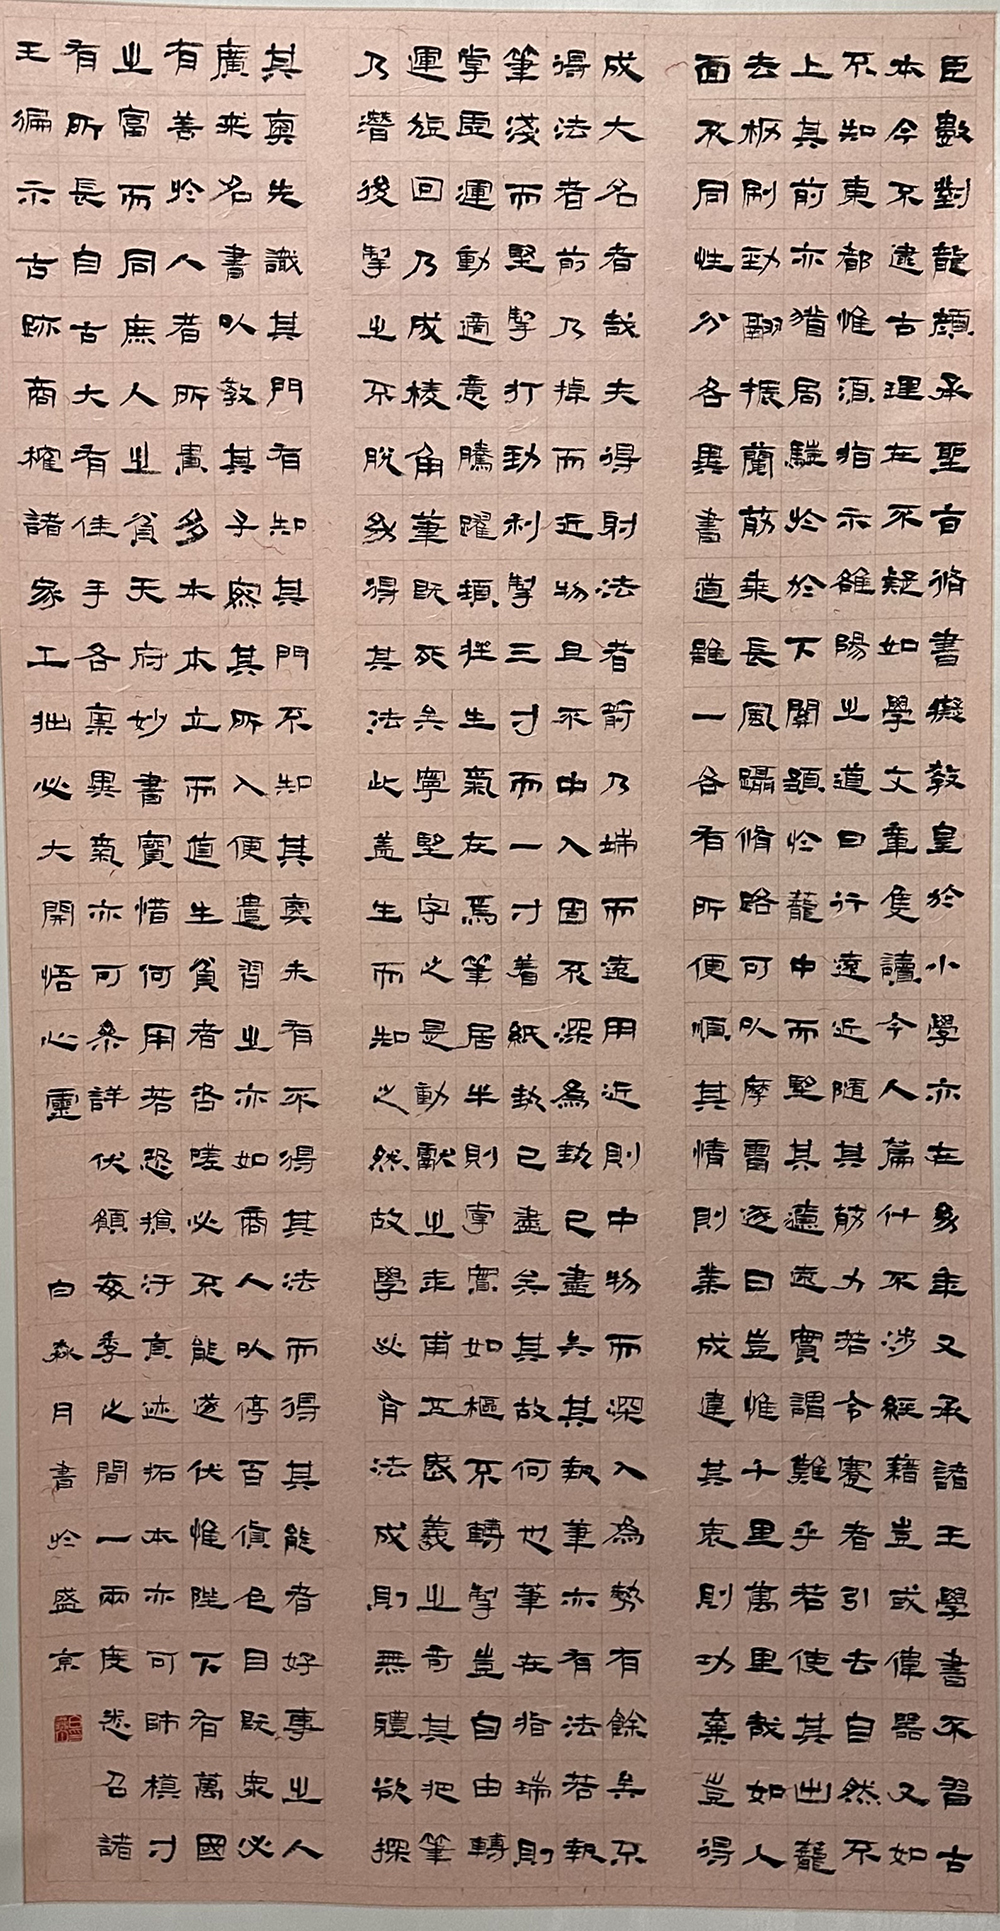 臣數對龍顏承聖旨脩書擬教皇於小學亦在幼年又承諸王學書不習古
本今不逮古理在不疑如學文章隻讀今人篇什不涉經籍豈或偉器又如
不知東都惟須指示雒陽之道日行遠近隨其筋力若令蹇者引去自然不
上其前亦猶局驥於於下關題於龍中而堅其遼遠實謂難乎若使其出龍
去柳刷勁翮振蘭筋乘長風躡脩路可以摩霄逐日豈惟千里萬里哉如人
面不同性分各異書道雖一各有所便順其情則業成違其衷則功棄豈得
成大名者哉夫得射法者箭乃端而遠用近則中物而深入為勢有餘矣不
得法者前乃掉而近物且不中入固不深為執已盡矣其執筆亦有法若執
筆淺而堅掣打勁利掣三寸而一寸着紙執已盡矣其故何也筆在指端則
掌虛運動適意騰躍頓挫生氣在焉筆居半則掌實如樞不轉掣豈自由轉
運旋回乃成棱角筆既死矣寧堅字之是動獻之年甫五歲羲之奇其把筆
乃潛後掣之不脫幼得其法此蓋生而知之然故學必有法成則無體欲探
其奧先識其門有知其門不知其奧未有不得其法而得其能者好事之人
廣求名書以教其子察其所入便遣習之亦如商人以停百貨色目既眾必
有善於人者所畫多本本立而道生貧者咨嗟必不能遂伏惟陛下有萬國
之富而同庶人之貧天府妙書寶惜何用若恐損汙真迹拓本亦可師模寸
有所長自古大有佳手各稟異氣亦可參詳伏願每季之間一兩度悉召諸
王徧示古跡商榷諸家工拙必大開悟心靈
白森月書於盛京